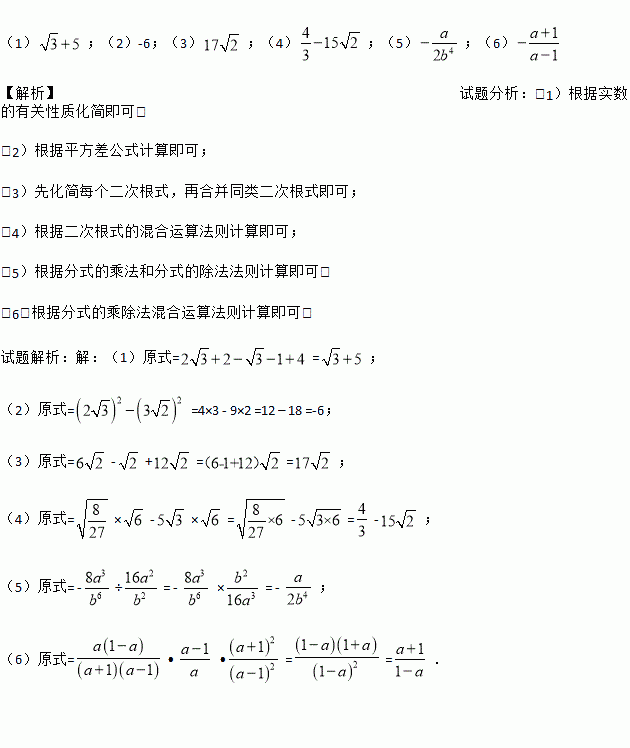 （1）√3+5 ；（2）-6；（3）17√2 ；（4）4/3−15√2 ；（5）−a/(2b⁴) ；（6）−(a+1)/(a−1)
【解析】 试题分析：□1）根据实数
的有关性质化简即可□
□2）根据平方差公式计算即可；
□3）先化简每个二次根式，再合并同类二次根式即可；
□4）根据二次根式的混合运算法则计算即可；
□5）根据分式的乘法和分式的除法法则计算即可□
□6□根据分式的乘除法混合运算法则计算即可□
试题解析：解：（1）原式=2√3+2−√3−1+4 =√3+5 ；
（2）原式=(2√3)²−(3√2)² =4×3 - 9×2 =12 – 18 =-6；
（3）原式=6√2 -√2 +12√2 =(6-1+12)√2 =17√2 ；
（4）原式=√(8/27) ×√6 -5√3 ×√6 =√(8/27×6) -5√(3×6) =4/3 -15√2 ；
（5）原式=-8a³/b⁶ ÷16a²/b² =- 8a³/b⁶ ×b²/(16a³) =- a/(2b⁴) ；
（6）原式=a(1−a)/((a+1)(a−1)) •(a−1)/a •(a+1)²/(a−1)² =(1−a)(1+a)/(1−a)² =(a+1)/(1−a) ．